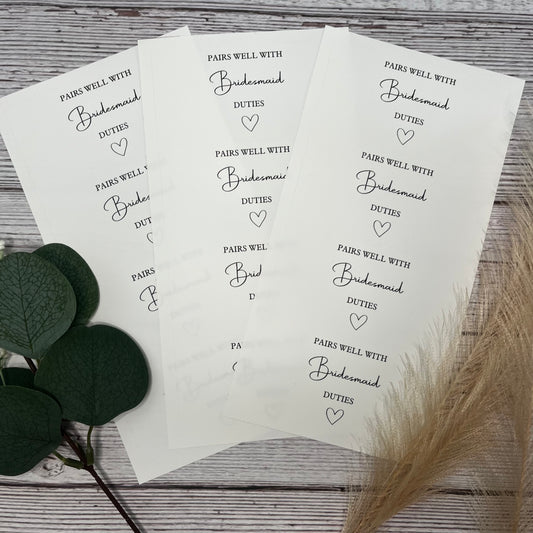 PAIRS WELL WITH
Bridesmaid
DUTIES
PAIRS WELL WITH
Bridesmaid
DUTIES
PAIRS
PAIRS WELL WITH
Bridesmaid
DUTIES
PAIRS WELL WITH
Bridesmaid
DUTIES
PAIRS WELL WITH
PAIRS
PAIRS WELL WITH
Bridesmaid
DUTIES
PAIRS WELL WITH
Bridesmaid
DUTIES
PAIRS WELL WITH
Bridesmaid
DUTIES
PAIRS WELL WITH
Bridesmaid
DUTIES